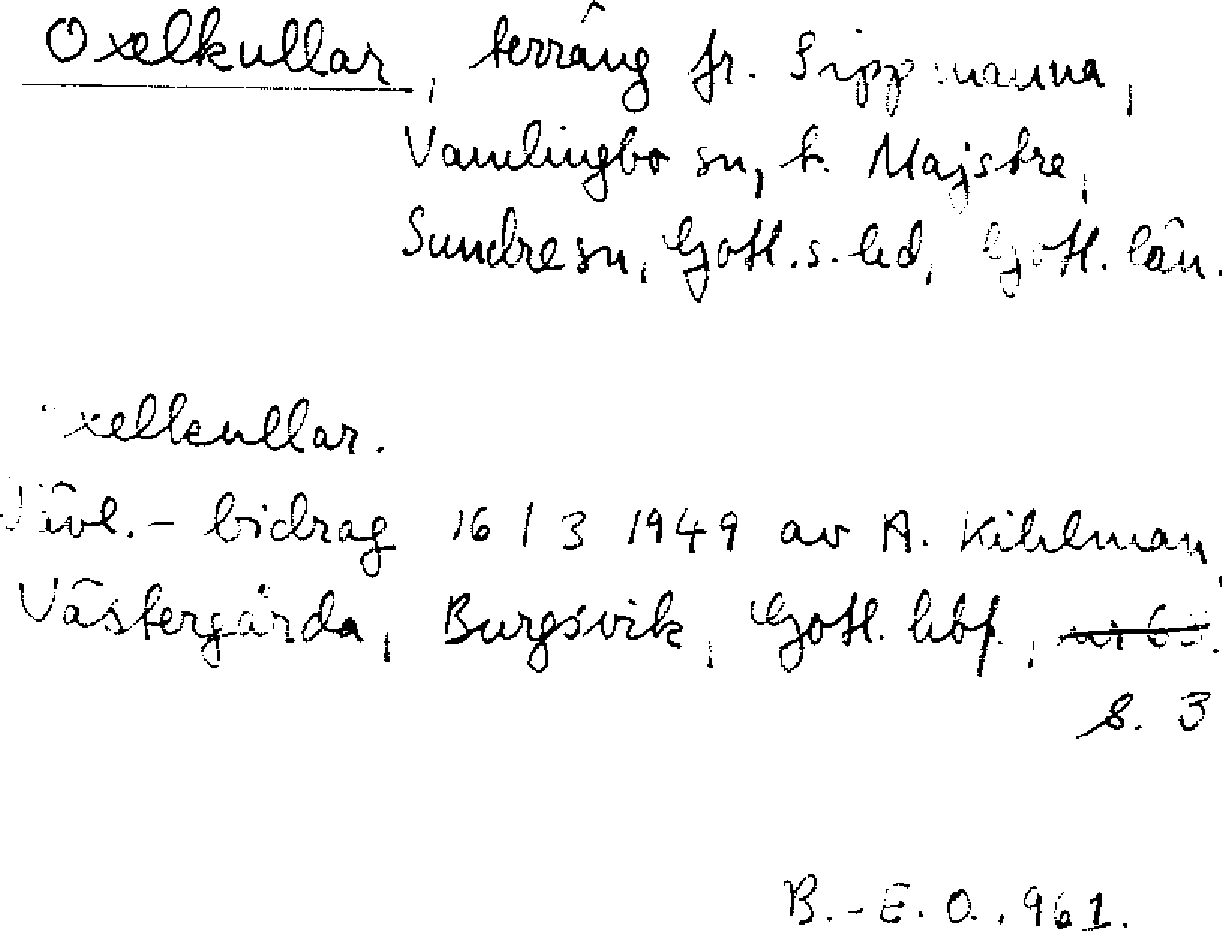 Oxelkullar, terräng fr. Sippmanna,
Vamlingbo sn, t. Majstre,
Sundre sn, Gotl. s. hd, Gotl. län.
xelkullar.
Tävl.- bidrag 16/3 1949 av A. Kihlman,
Västergårda, Burgsvik, Gotl. hbf,
s. 3
B.-E. O. 961.